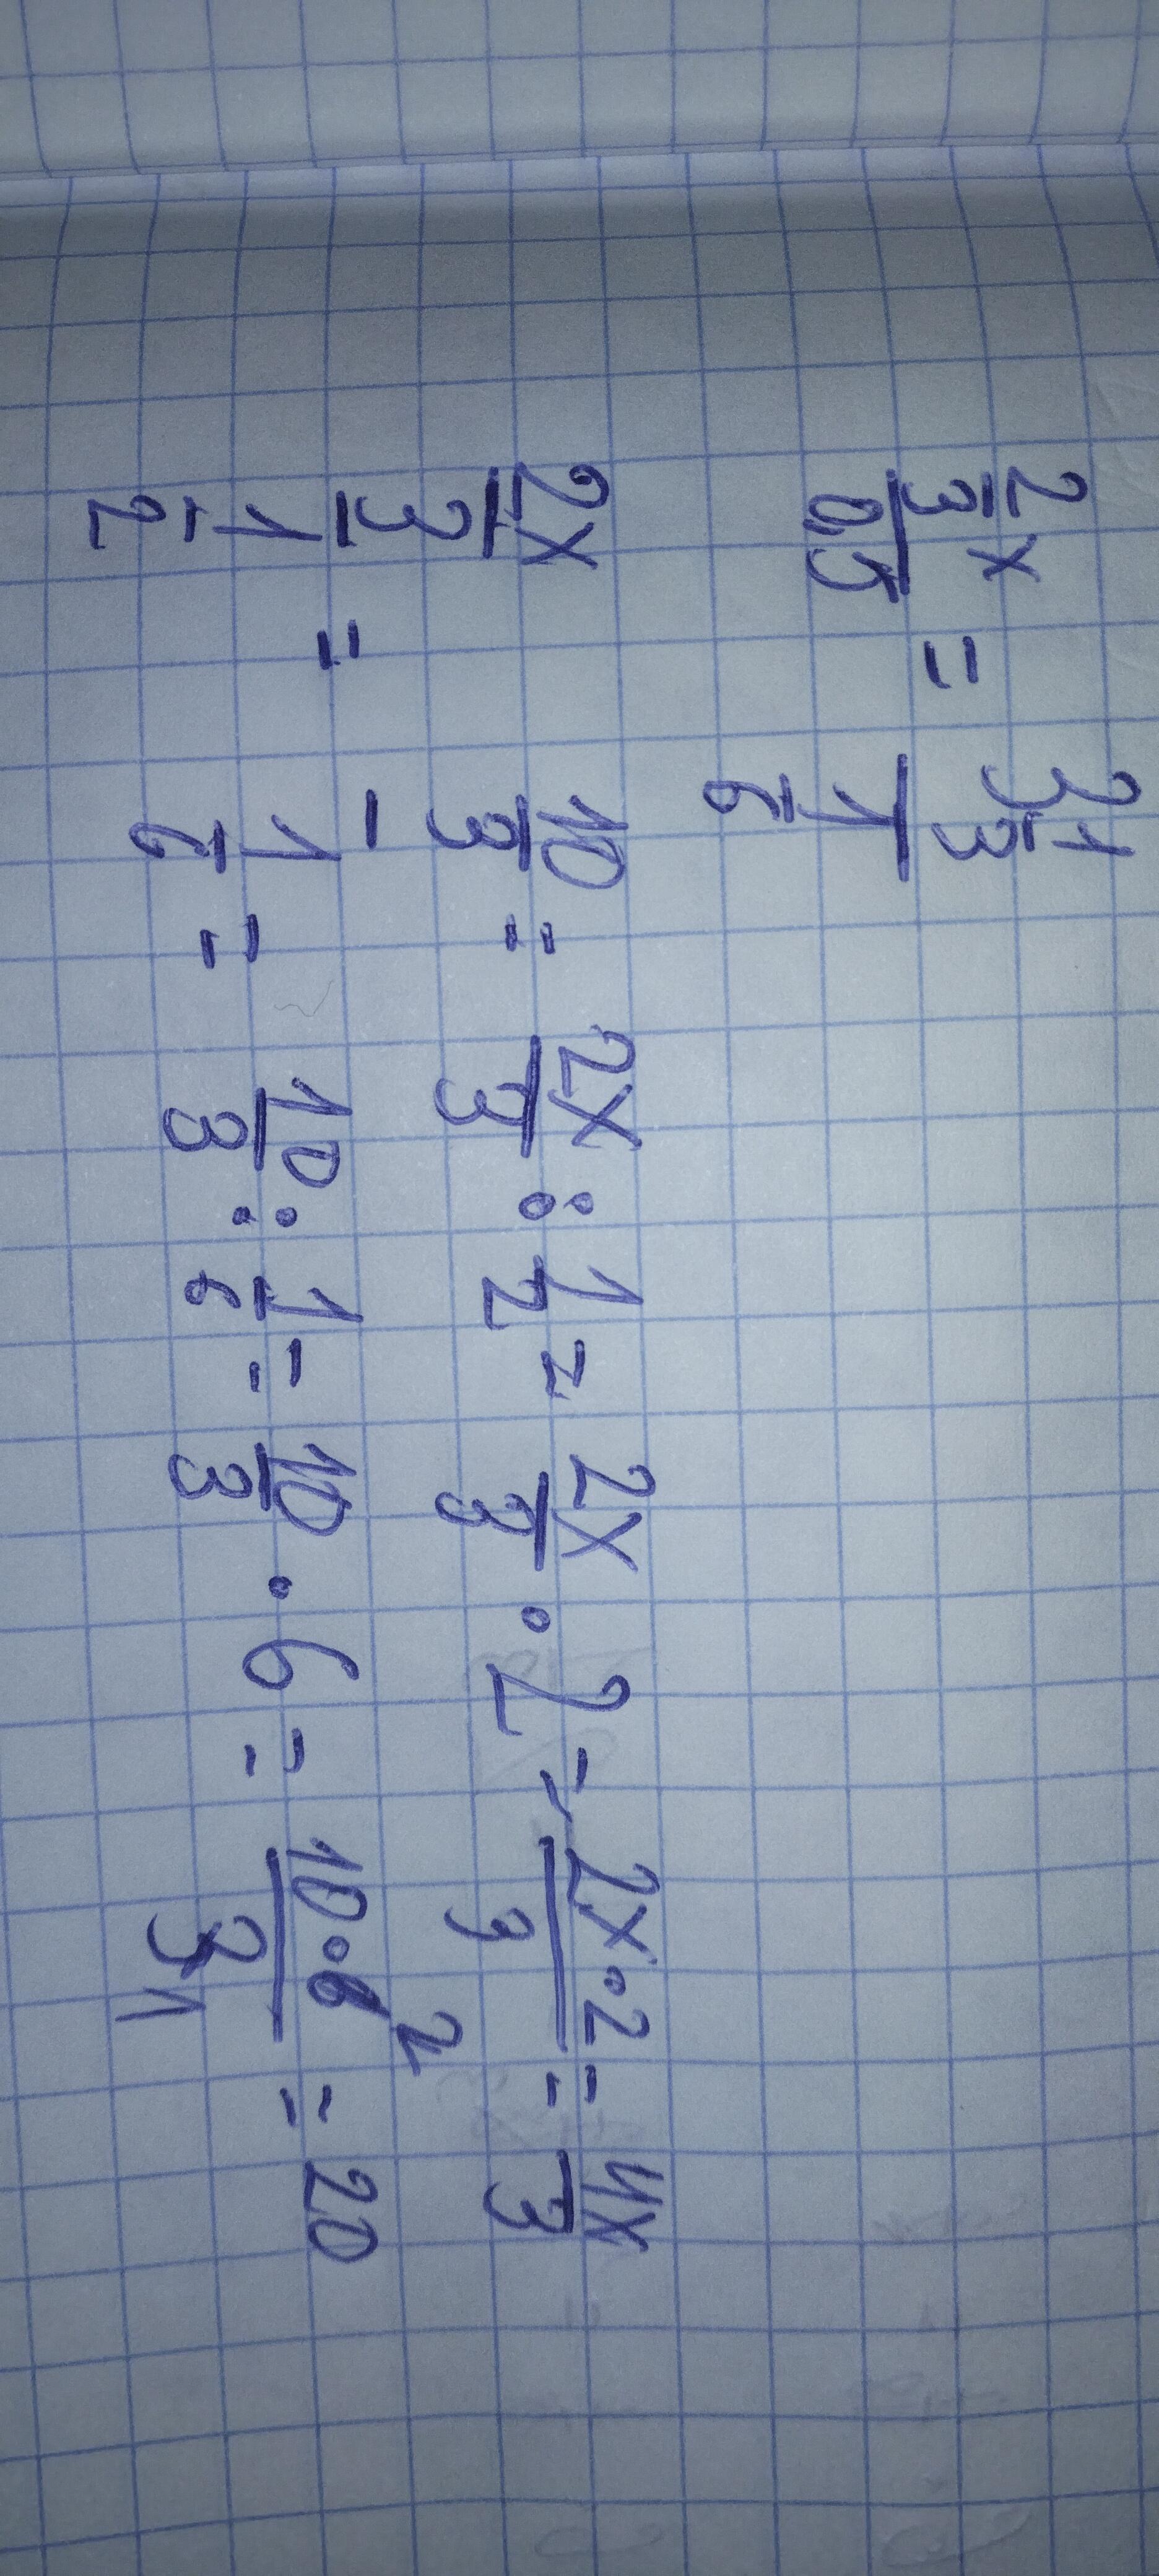 (2/3 x)/0,5 = (3 1/3)/(1/6)
(2x/3)/(1/2) = (10/3)/(1/6) = 2x/3 : 1/2 = 2x/3 · 2 = 2x·2/3 = 4x/3
= 10/3 : 1/6 = 10/3 · 6 = 10·6 2/3 1 = 20